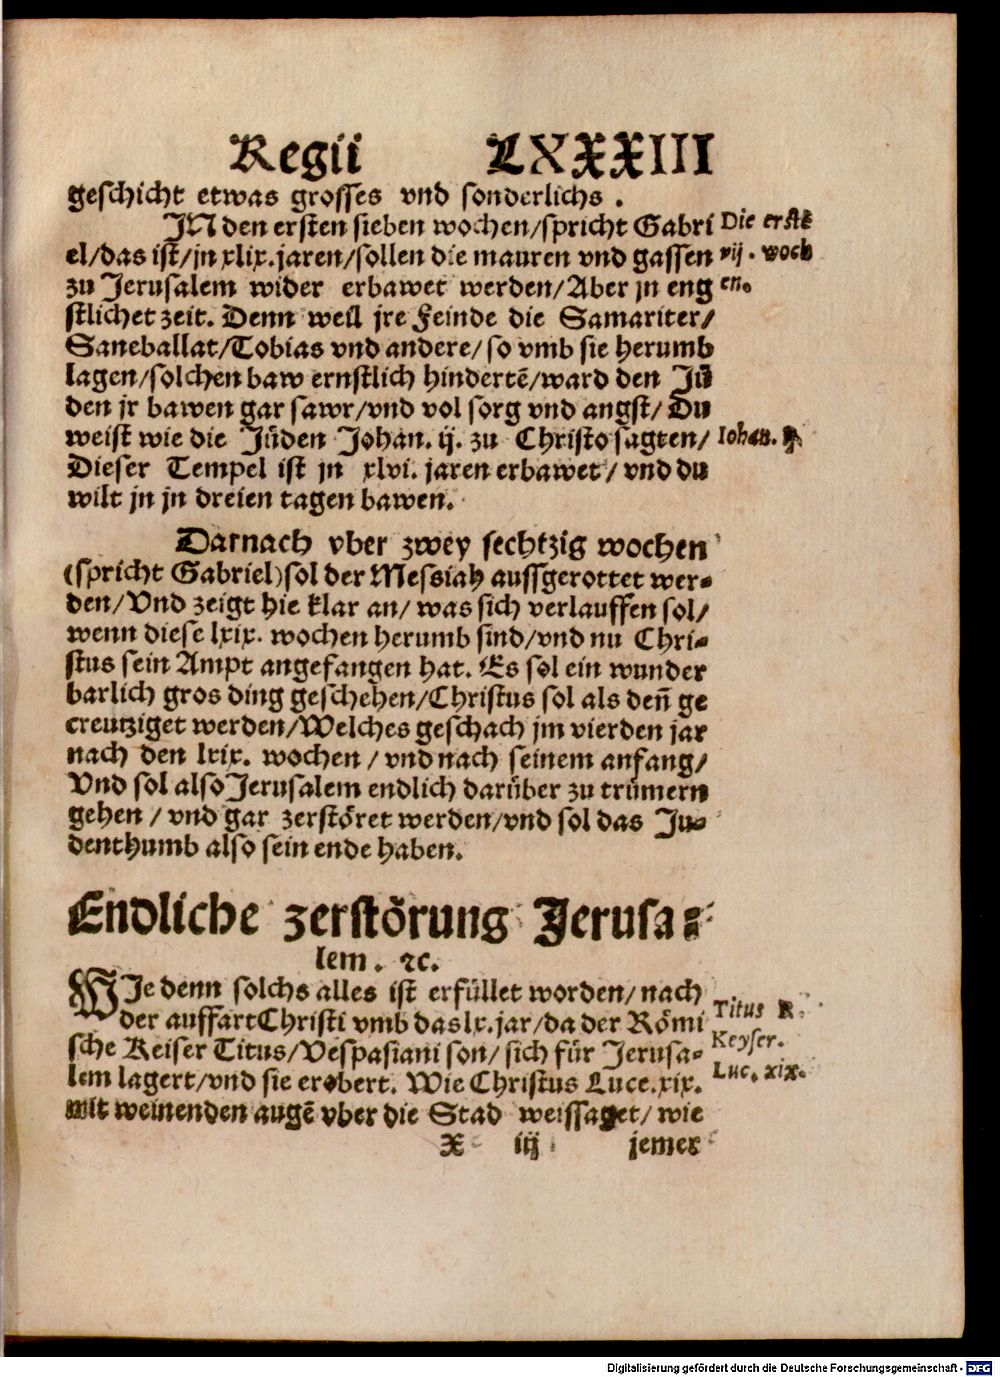 Regii LXXXIII
geschicht etwas grosses vnd sonderlichs .
JN den ersten sieben wochen/spricht Gabri
Die erste
el/das ist/jn xlix.jaren/sollen die mauren vnd gassen
vij. woch
zu Jerusalem wider erbawet werden/Aber jn eng
en.
stlichet zeit. Denn weil jre Feinde die Samariter/
Saneballat/Tobias vnd andere/so vmb sie herumb
lagen/solchen baw ernstlich hindertē/ward den Jü
den jr bawen gar sawr/vnd vol sorg vnd angst/Du
weist wie die Jüden Johan. ij. zu Christo sagten/
Iohan.
Dieser Tempel ist jn xlvi. jaren erbawet/vnd du
wilt jn jn dreien tagen bawen.
Darnach vber zwey sechtzig wochen
(spricht Gabriel)sol der Messiah aussgerottet wer-
den/Vnd zeigt hie klar an/was sich verlauffen sol/
wenn diese lxix. wochen herumb sind/vnd nu Chri-
stus sein Ampt angefangen hat. Es sol ein wunder
barlich gros ding geschehen/Christus sol als deñ ge
creutziget werden/Welches geschach jm vierden jar
nach den lxix. wochen/vnd nach seinem anfang/
Vnd sol also Jerusalem endlich darüber zu trümern
gehen/vnd gar zerstöret werden/vnd sol das Ju-
denthumb also sein ende haben.
Endliche zerstörung Jerusa-
lem. ꝛc.
WJe denn solchs alles ist erfüllet worden/nach
der auffart Christi vmb das lx.jar/da der Römi
Titus R.
sche Keiser Titus/Vespasiani son/sich für Jerusa-
Keyser.
lem lagert/vnd sie erobert. Wie Christus Luce.xix.
Luc. xix.
mit weinenden augē vber die Stad weissaget/wie
X iij jemer
Digitalisierung gefördert durch die Deutsche Forschungsgemeinschaft - DFG